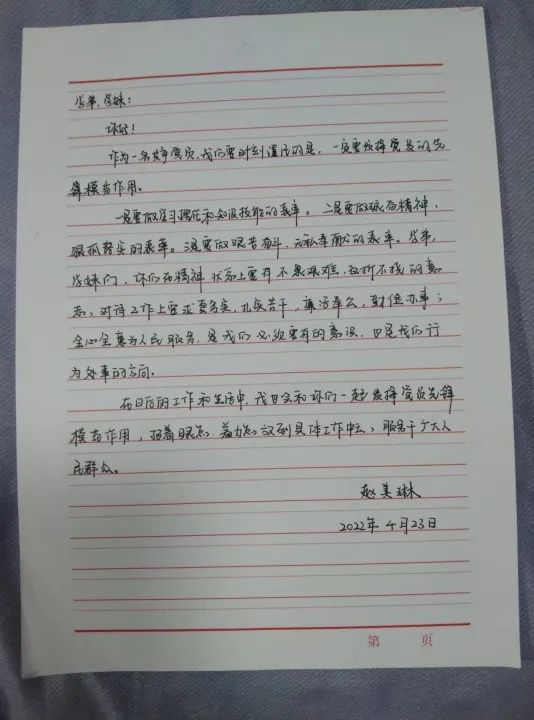 学弟、学妹：
你好！
作为一名共产党员，我们要时刻谨记的是，一定要发挥党员的先
锋模范作用。
一是要做学习理论和知识技能的表率。二是要做顽强精神、
狠抓落实的表率。三是要做艰苦奋斗、无私奉献的表率。学弟、
学妹们，你们在精神状态上要有不畏艰难、百折不挠的意
志；对待工作上要求真务实，扎实苦干，廉洁奉公，勤俭办事；
全心全意为人民服务，是我们必须要有的意识，也是我们行
为处事的方向。
在日后的工作和生活中，我也会和你们一起发挥党员先锋
模范作用，把着眼点、着力点放到具体工作中去，服务于广大人
民群众。
赵美琳
2022年4月23日
第 页